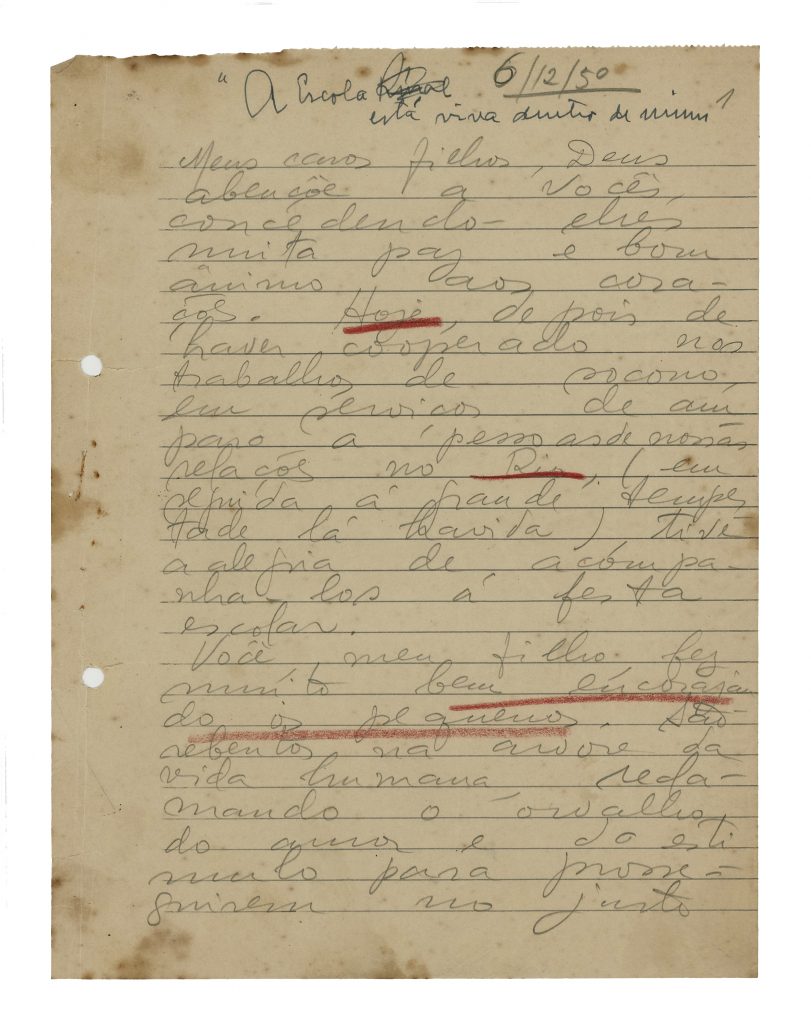 6/12/50
"A Escola
está viva dentro de mim" 1
Meus caros filhos, Deus
abençõe a vocês,
concedendo-lhes
muita paz e bom
ânimo aos cora-
ções. Hoje, depois de
haver cooperado nos
trabalhos de socorro,
em serviços de am
paro a pessoas de nossas
relações no Rio, (em
seguida á grande tempes
tade lá havida), tive
a alegria de acompa-
nha-los á festa
escolar.
Você, meu filho fez
muito bem encorajan
do os pequenos. São
rebentos na arvore da
vida humana recla-
mando o orvalho
do amor e do esti
mulo para prosse-
guirem no justo